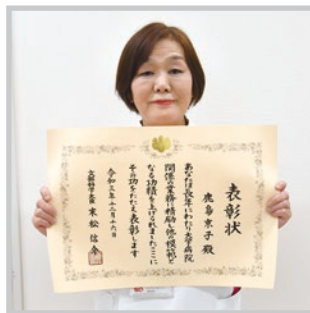 表彰状
鹿島京子 殿
あなたは長年にわたり大学病院
関係の業務に精励し他の模範と
なる功績を上げられましたここに
その功をたたえ表彰します
令和三年十二月十六日
文部科学大臣 末松信介